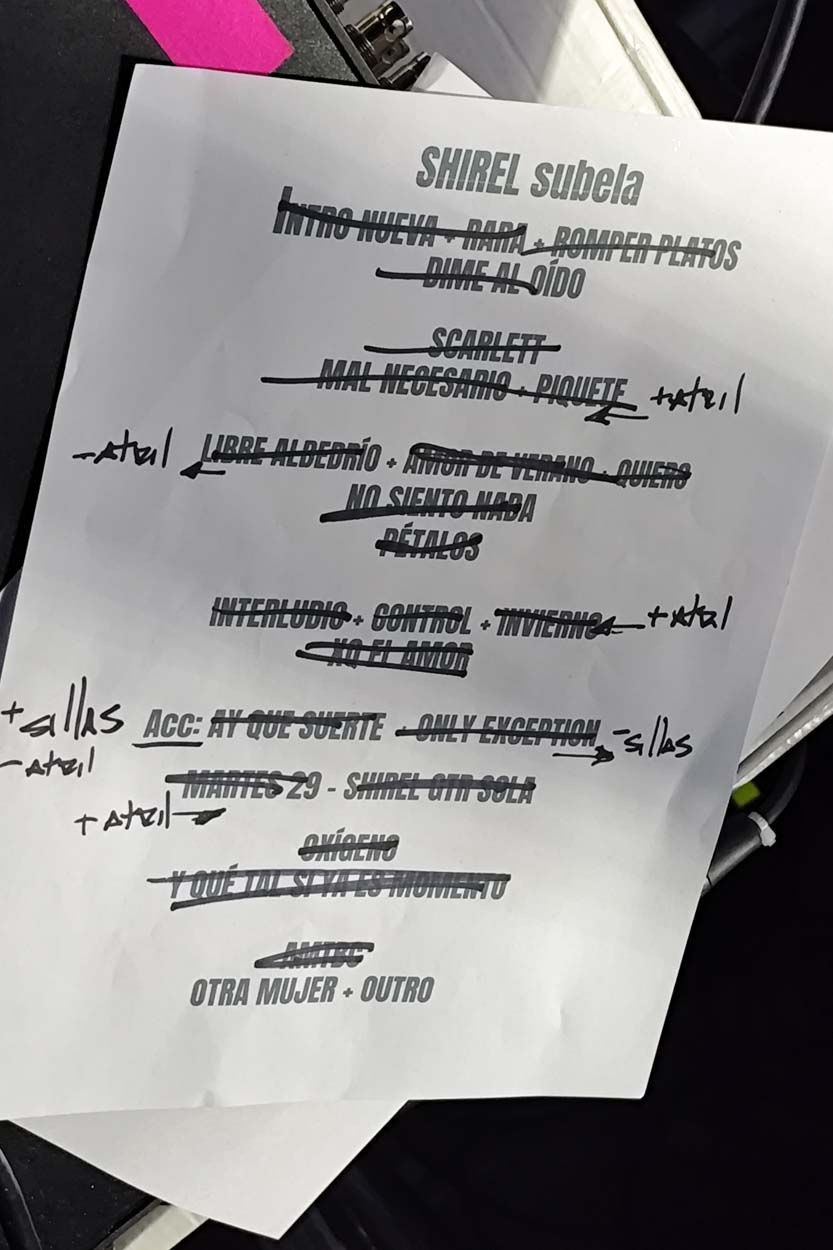 SHIREL subela
INTRO NUEVA + RARA + ROMPER PLATOS
DIME AL OÍDO
SCARLETT
MAL NECESARIO + PIQUETE +atril
-atril LIBRE ALBEDRÍO + AMOR DE VERANO + QUIERO
NO SIENTO NADA
PÉTALOS
INTERLUDIO + CONTROL + INVIERNO +atril
NO EL AMOR
+sillas ACC: AY QUE SUERTE + ONLY EXCEPTION -sillas
-atril
MARTES 29 - SHIREL GTR SOLA
+atril
OXÍGENO
Y QUÉ TAL SI YA ES MOMENTO
AMTBC
OTRA MUJER + OUTRO